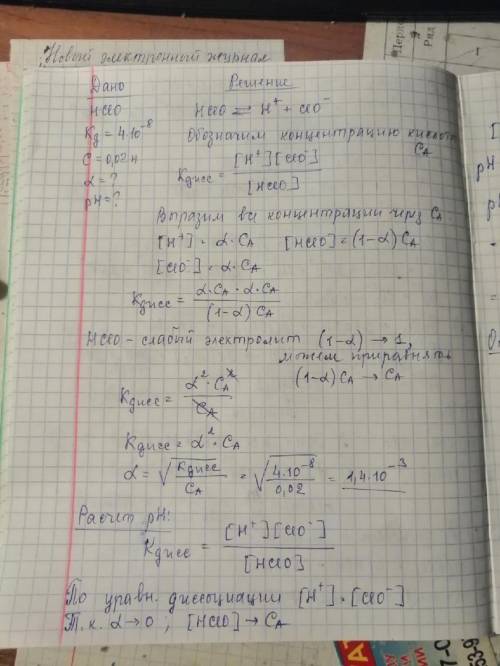 Новый электронный журнал
Дано Решение
HClO HClO ⇌ H⁺ + ClO⁻
Kд = 4·10⁻⁸ Обозначим концентрацию кислоты
C = 0,02 н CA
α = ? Kдисс = [H⁺][ClO⁻] / [HClO]
pH = ?
Выразим все концентрации через CA
[H⁺] = α·CA [HClO] = (1-α)CA
[ClO⁻] = α·CA
Kдисс = α·CA·α·CA / (1-α)CA
HClO - слабый электролит (1-α) → 1,
можем приравнять
(1-α)CA → CA
Kдисс = α²·CA² / CA
Kдисс = α²·CA
α = √(Kдисс / CA) = √(4·10⁻⁸ / 0,02) = 1,4·10⁻³
Расчет pH:
Kдисс = [H⁺][ClO⁻] / [HClO]
По уравн. диссоциации [H⁺] = [ClO⁻]
Т.к. α→0; [HClO] → CA